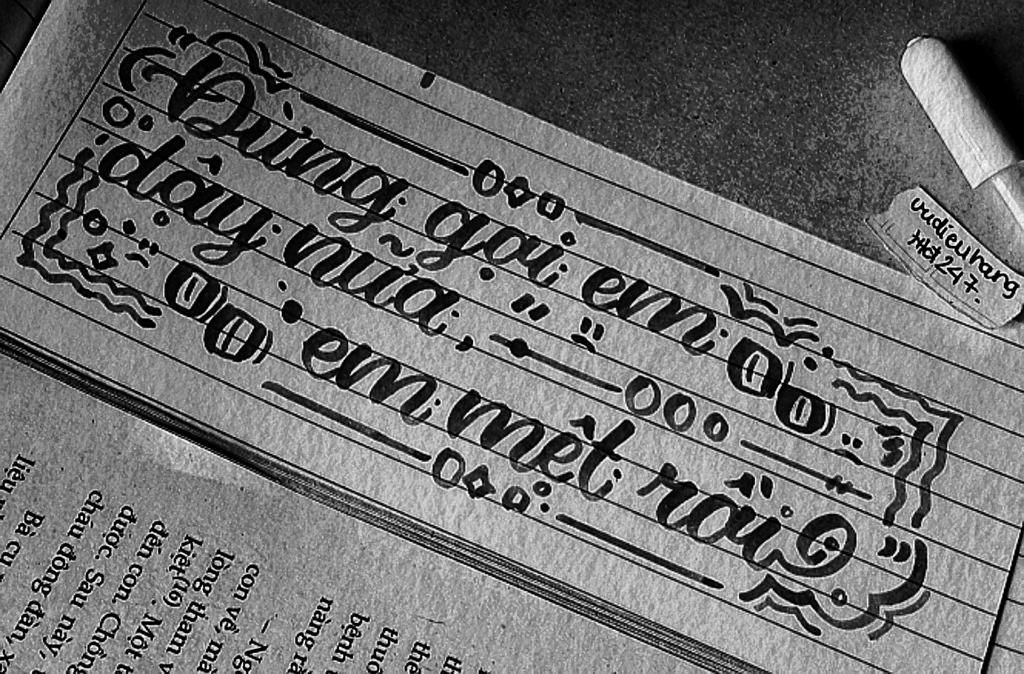 Đừng gọi em
dậy nữa,
em mệt rồi
vudieuhang
liệu
Bà cụ
cháu đông đàn,
được. Sau này,
đến con. Chồng
kiệt(16). Một
lòng than
con về, mà
nàng
bệnh